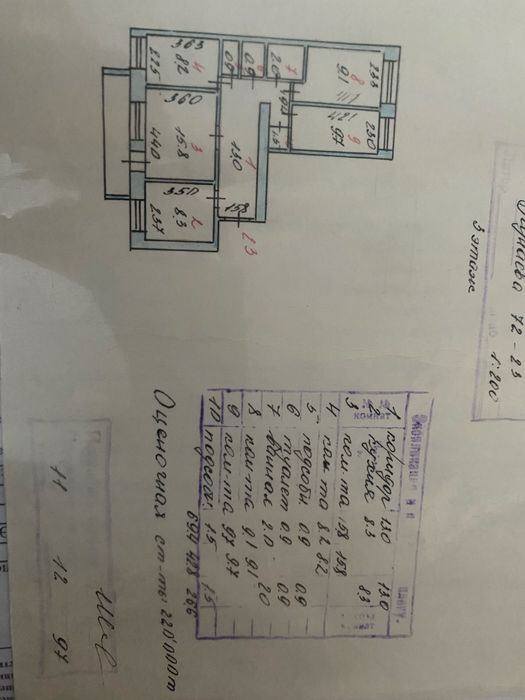 72-23
1:200
3 этаже
3.63
8.2
4
2.25
3.60
15.8
3
4.40
3.50
8.3
2
2.37
0.9
0.9
7
2.0
8
9.1
2.33
9
9.7
2.30
1.5
1
13.0
1.58
23
Экспликация
1 коридор 13.0 13.0
2 кухня 8.3 8.3
3 ком-та 15.8 15.8
4 ком-та 8.2 8.2
5 0.9 0.9
6 туалет 0.9 0.9
7 ванная 2.0 2.0
8 ком-та 9.1 9.1
9 ком-та 9.7 9.7
10 1.5 1.5
69.4 42.8 26.6
Оценочная ст-ть: 220'000т
11 12 97